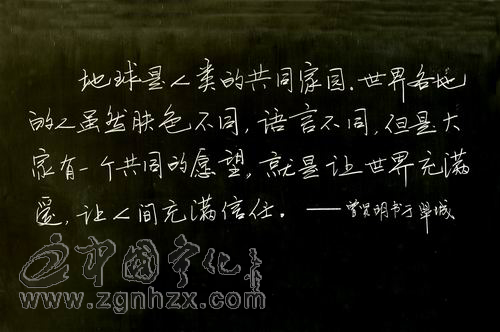 地球是人类的共同家园.世界各地
的人虽然肤色不同,语言不同,但是大
家有一个共同的愿望,就是让世界充满
爱,让人间充满信任。——曾贤明书于单城
中国宁化
www.zgnhzx.com